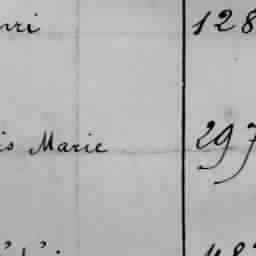 nri 128
is Marie 297